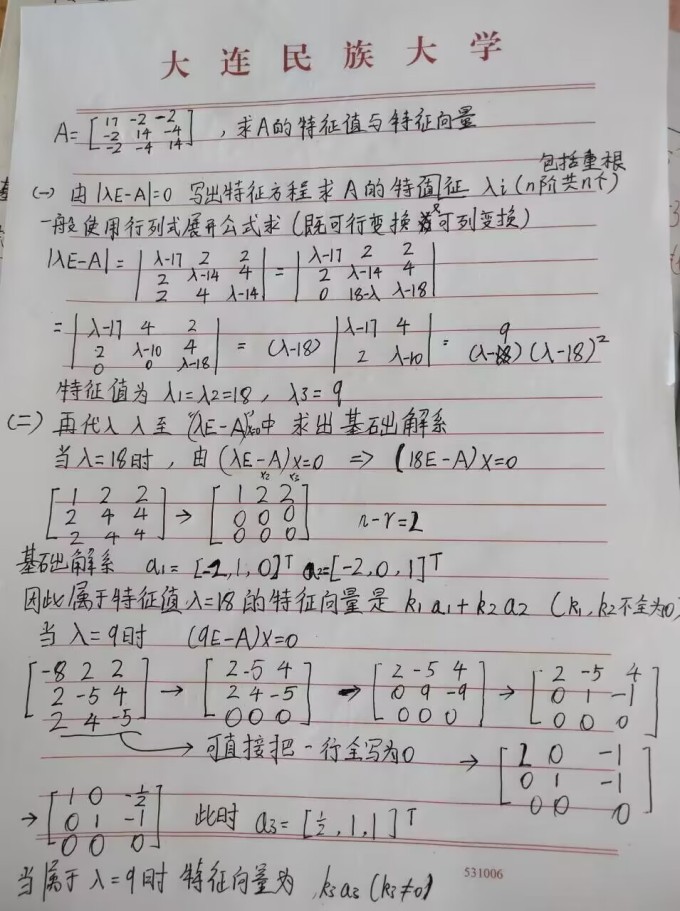 大连民族大学
A=[17 -2 -2; -2 14 -4; -2 -4 14],求A的特征值与特征向量
包括重根
(一) 由|λE-A|=0 写出特征方程求A的特值征 λi(n阶共n个)
一般使用行列式展开公式求(既可行变换 可列变换)
|λE-A| = |λ-17 2 2; 2 λ-14 4; 2 4 λ-14| = |λ-17 2 2; 2 λ-14 4; 0 18-λ λ-18|
= |λ-17 4 2; 2 λ-10 4; 0 0 λ-18| = (λ-18) |λ-17 4; 2 λ-10| = (λ-9)(λ-18)²
特征值为 λ1=λ2=18, λ3=9
(二) 再代入λ至"(λE-A)x=0"中 求出基础解系
当λ=18时,由(λE-A)x=0 ⇒ (18E-A)X=0
x2 x3
[1 2 2; 2 4 4; 2 4 4] → [1 2 2; 0 0 0; 0 0 0] n-r=2
基础解系 a1=[-2,1,0]ᵀ a2=[-2,0,1]ᵀ
因此属于特征值λ=18的特征向量是 k1a1+k2a2 (k1,k2不全为0)
当λ=9时 (9E-A)X=0
[-8 2 2; 2 -5 4; 2 4 -5] → [2 -5 4; 2 4 -5; 0 0 0] → [2 -5 4; 0 9 -9; 0 0 0] → [2 -5 4; 0 1 -1; 0 0 0]
→ 可直接把一行全写为0 → [2 0 -1; 0 1 -1; 0 0 0]
→ [1 0 -1/2; 0 1 -1; 0 0 0] 此时 a3=[1/2,1,1]ᵀ
当属于λ=9时 特征向量为 k3a3(k3≠0)
531006